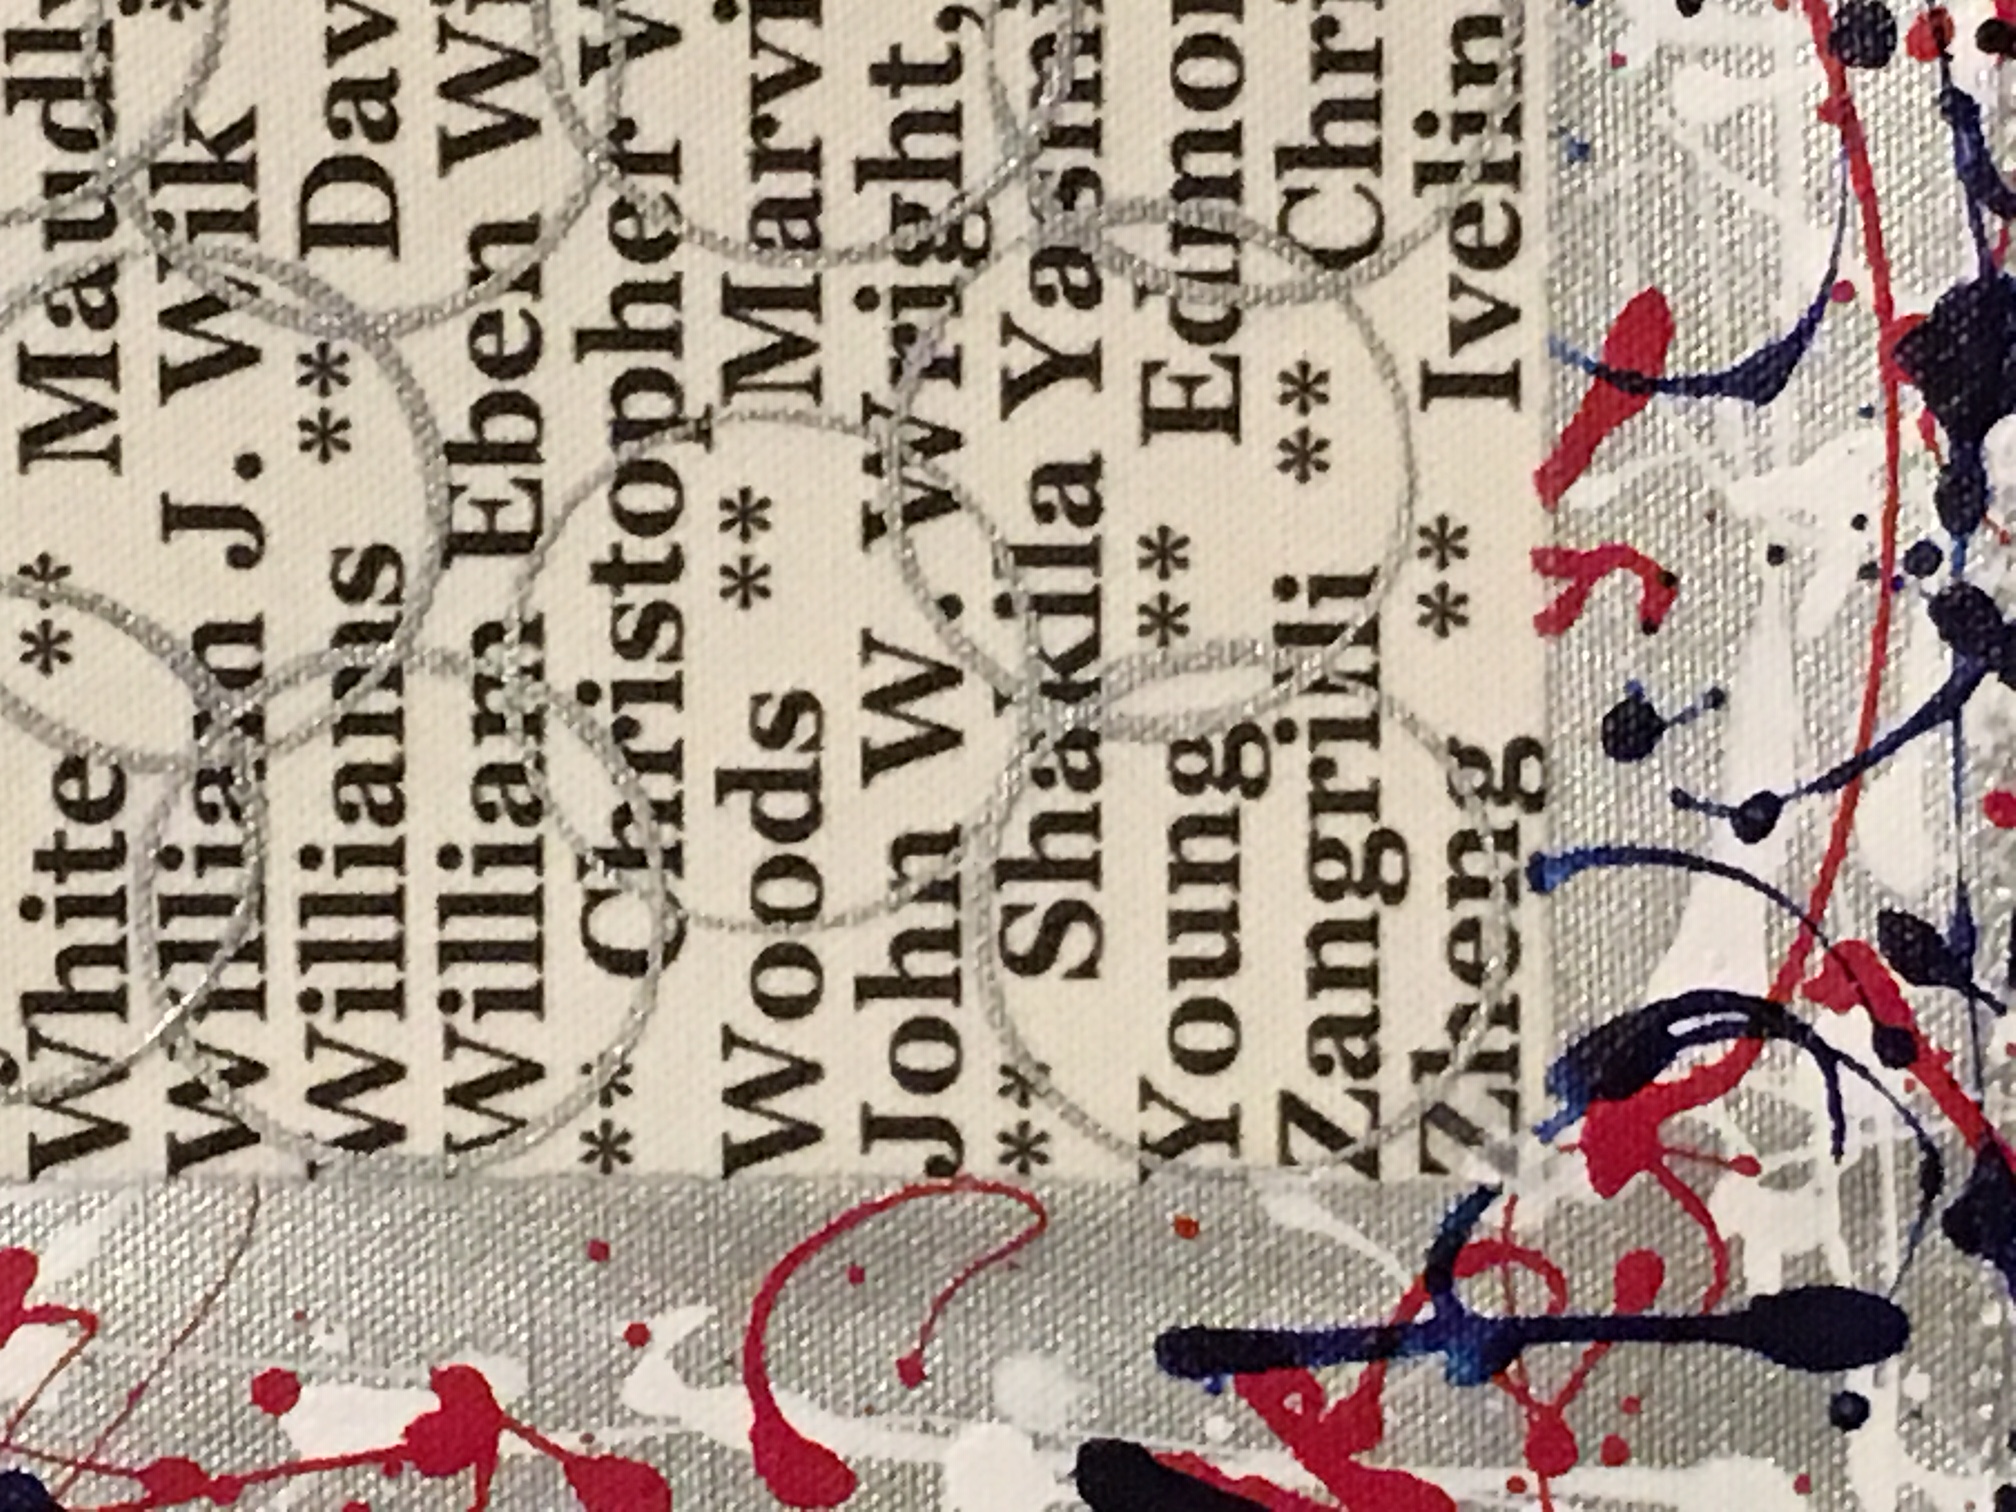 White ** Maudly
William J. Wik **
Williams ** Dav
William Eben Wi
** Christopher W
Woods ** Marvi
John W. Wright,
** Shakila Yasmi
Young ** Edmon
Zangrilli ** Chri
Zheng ** Ivelin